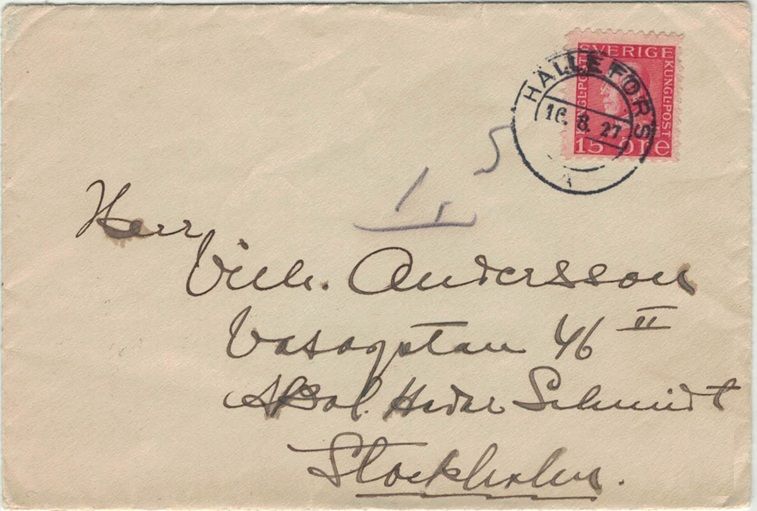 SVERIGE
KUNGL-POST
KUNGL-POST
15 öre
HÄLLEFORS
16. 8. 27
Herr
Vilh. Andersson
Vasagatan 46 II
Schmidt
Stockholm.